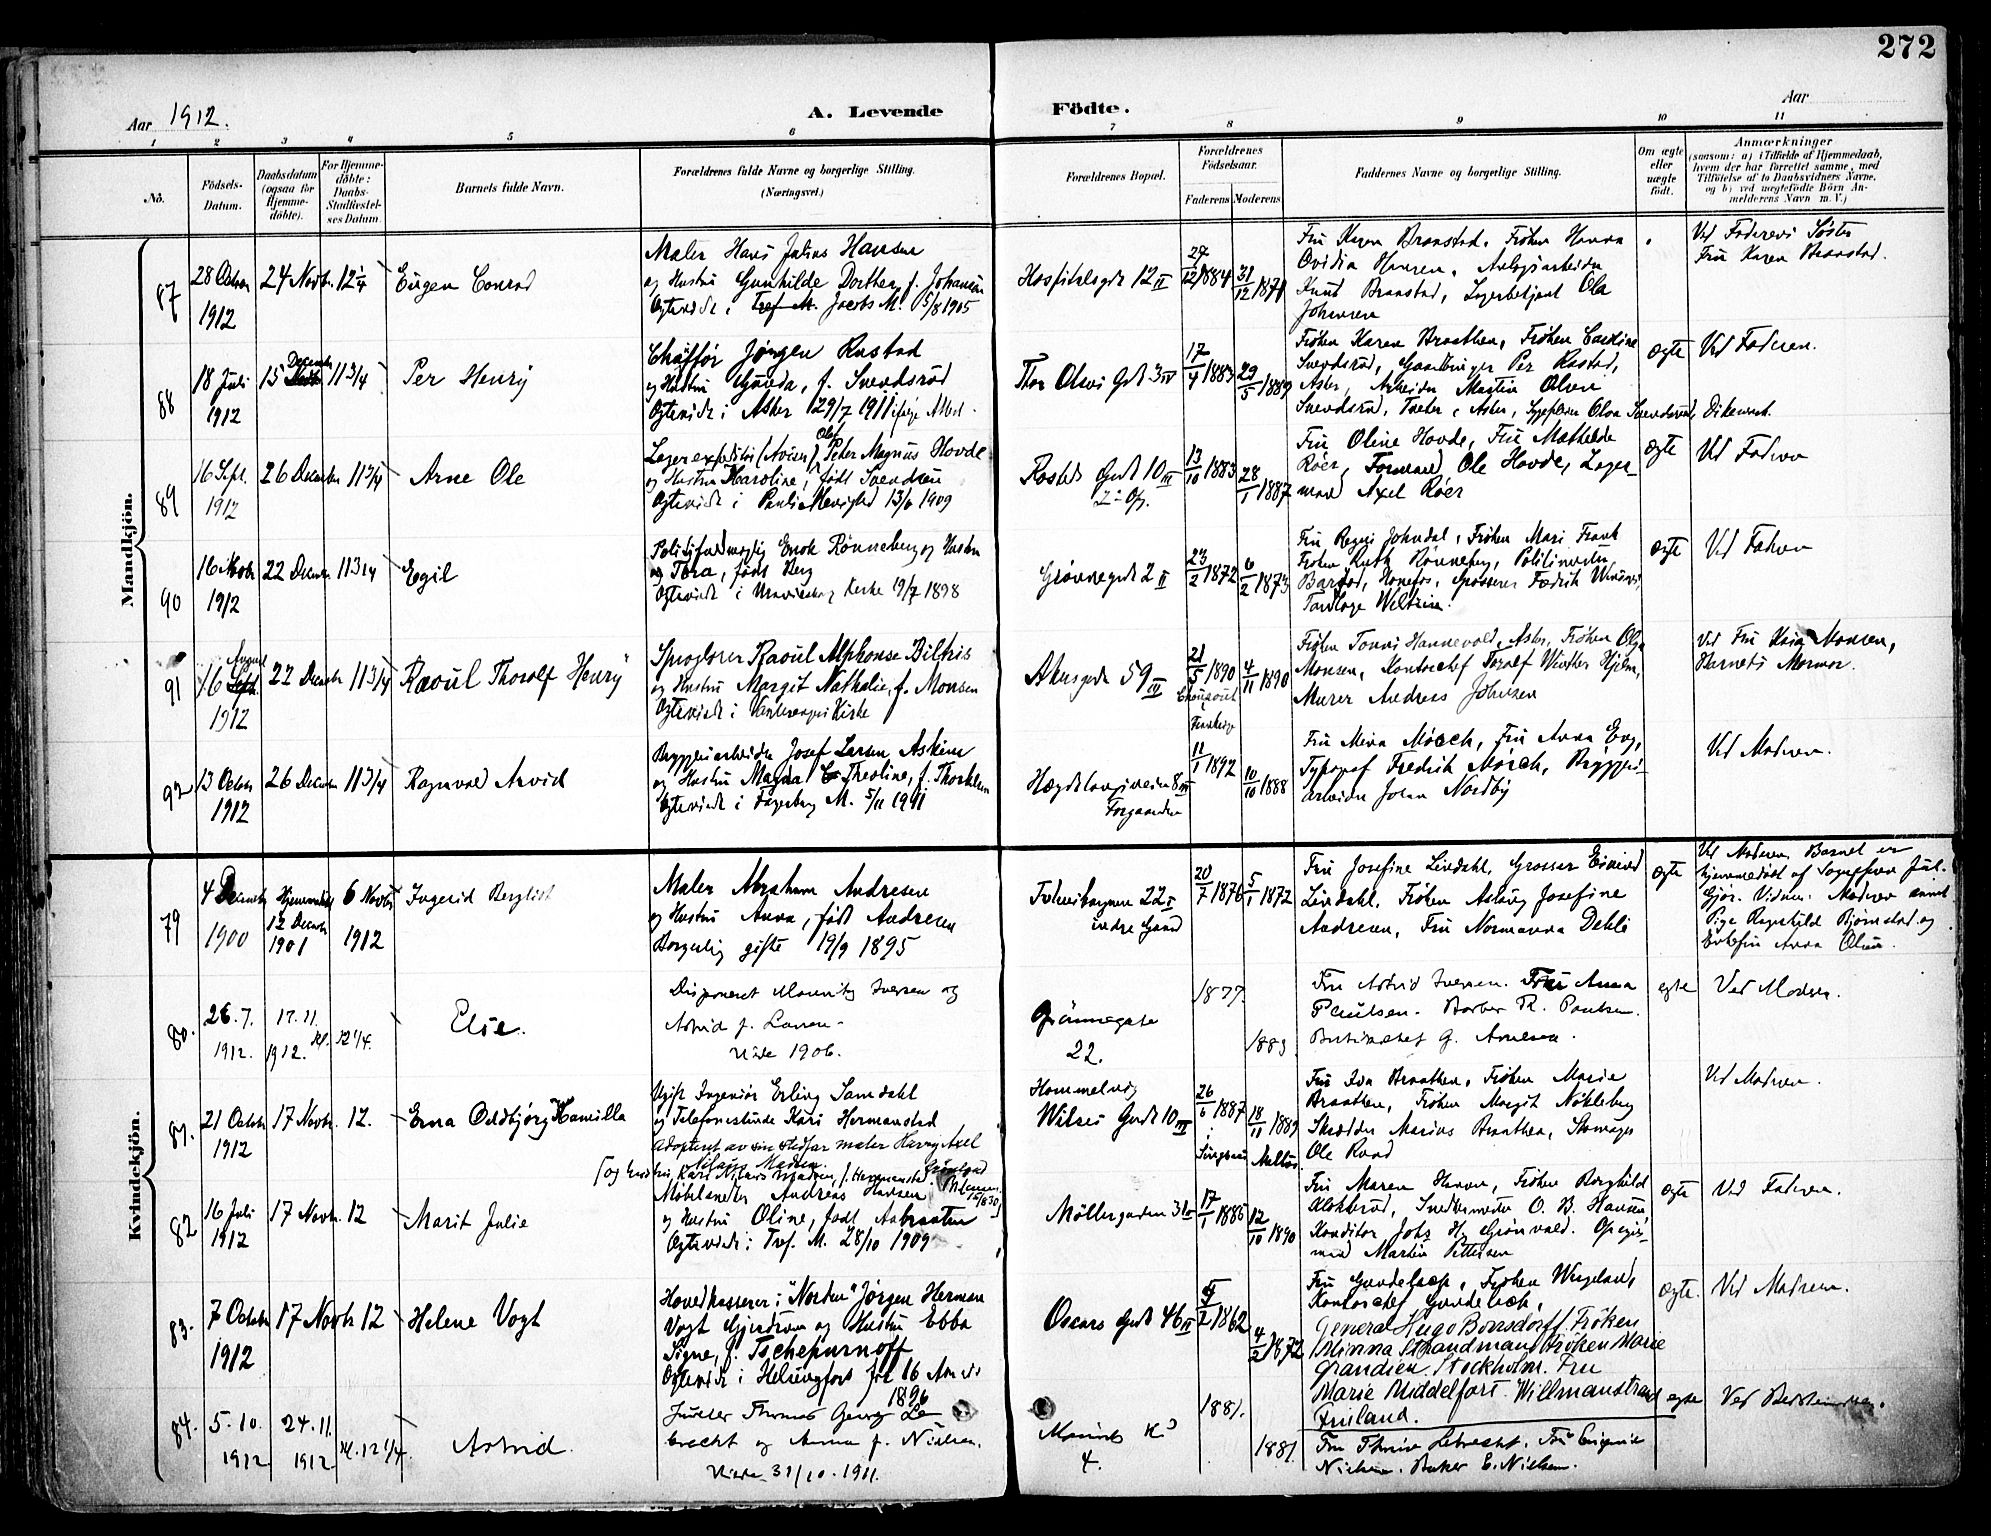 272
Aar 1912.
A. Levende Födte.
Aar
1 2 3 4 5 6 7 8 9 10 11
No.
Födsels-
Datum.
Daabsdatum
(ogsaa for
Hjemme-
döbte).
For Hjemme-
döbte:
Daabs-
Stadfæstel-
ses Datum.
Barnets fulde Navn.
Forældrenes fulde Navne og borgerlige Stilling.
(Næringsvei.)
Forældrenes Bopæl.
Forældrenes
Födselsaar.
Faderens Moderens
Faddernes Navne og borgerlige Stilling.
Om ægte
eller
uægte
födt.
Anmærkninger
(saasom: a) i Tilfælde af Hjemmedaab,
hvem der har forrettet samme, med
Tilföielse af to Daabsvidners Navne,
og b) ved uægtefödte Börn An-
melderens Navn m. V.)
Mandkjön.
87
28 Octbr
1912
24 Novbr. 12 1/4
Eugen Conrad
Maler Hans Julius Hansen
og Hustru Gunhilde Dorthea, f. Johansen
Ogteviede i Tref. M. Jacobs M. 5/8 1905
Hospitalsgdt 12 II
27/12 1884
31/12 1871
Fru Karen Branstad, Frøken Hanna
Ovidia Hansen,
Knut Branstad, Lagerbetjent Ola
Johansen
Ved Faderens Søster
Fru Karen Branstad.
88
18 Juli
1912
15 Decembr 11 3/4
Per Henry
Chaffør Jørgen Rustad
og Hustru Gunda, f. Svendsrud
Ogteviede i Asker 29/7 1911
Thor Olsens Gdt 3 IV
17/4 1883
29/5 1889
Frøken Karen Braathen, Frøken Caroline
Svendsrud, Gaardbruger Per Rustad,
Asker, Arbeider Martin Olsen
Svendsrud, Tveter, Asker, Olva Svendsrud, Dikemark.
ægte
Ved Faderen.
89
16 Sept.
1912
26 Decembr 11 3/4
Arne Ole
Lagerexpeditør (Aviser) Olaf Peter Magnus Hovde
og Hustru Karoline, født Svendsen
Ogteviede i Pauli Menighed 13/6 1909
Rosteds Gdt 10 III
2 Opg.
13/10 1883
28/1 1887
Fru Oline Hovde, Fru Mathilde
Røer, Formand Ole Hovde, Lager-
mand Axel Røer
ægte
Ved Faderen
90
16 Novbr
1912
22 Decembr. 11 3/4
Egil
Politifuldmægtig Enok Rønneberg og Hustru
og Thra, født Berg
Ogteviede i Uranienborg Kirke 19/7 1898
Grønnegdt 2 II
23/2 1872
6/2 1873
Fru Ragni Johndal, Frøken Mari Frank
Frøken Ruth Rønneberg, Politimester
Barfod, Hønefos, Grosserer Fredrik
ægte
Ved Faderen
91
16 August
1912
22 Decembr 11 3/4
Raoul Thorolf Henry
Sproglærer Raoul Alphonse Biltris
og Hustru Margit Nathalie, f. Monsen
Ogteviede i Vaalerengens Kirke
Akersgade 59 IV
21/5 1890
4/11 1890
Frankrige
Frøken Tonni Hannevold, Asker, Frøken Olga
Monsen, Kontorchef Toralf Winther Hjelm,
Murer Andreas Johnsen
Ved Fru Kaia Monsen,
Barnets Mormor.
92
13 Octobr
1912
26 Decembr 11 3/4
Ragnvald Arvid
Bryggeriarbeider Josef Larsen Askim
og Hustru Magda Theoline, f. Thorkildsen
Ogteviede i Fagerborg M. 5/11 1911
Hægdehaugsveien 8 III
Forgaarden
11/1 1892
10/10 1888
Fru Mina Mörch, Fru Anna Eng,
Typograf Fredrik Mörch, Bryggeri-
arbeider Johan Nordby
Ved Moderen.
Kvindekjön.
79
4 Decembr
1900
Hjemmedøbt
12 Decembr
1901
6 Novbr
1912
Ingerid Bergliot
Maler Abraham Andresen
og Hustru Anna, født Andresen
Borgerlig gifte 19/9 1895
22 II
indre Gaard
20/7 1876
5/1 1872
Fru Josefine Lindahl, Grosser Eivind
Lindahl, Frøken Aslaug Josefine
Andresen, Fru Normanna Dehli
ægte
Ved Moderen. Barnet er
hjemmedøbt af Jul.
Gjør. Vidner: Moderen samt
Pige Ragnhild Bjørnstad og
Enkefru Anna Olsen.
80.
26.7.
1912.
17.11.
1912.
Kl. 12 1/4.
Else.
Disponent Mauritz Iversen og
Astrid f. Larsen.
Viede 1906.
Grönnegate
22.
1877.
1883.
Fru Astrid Iversen. Fru Anna
Paulsen. Barber R. Paulsen.
Butikchef G. Arnesen.
egte
Ved Moderen.
81.
21 Octobr
1912
17 Novbr. 12.
Erna Oddbjörg Kamilla
Ugift Ingeniør Erling Samdahl
og Telefonistinde Kari Hermanstad
adoptert av sin stedfar maler Harry Axel
Nilaus Madsen.
[og hustru, Kari Nilaus Madsen, f. Hermanstad
Hommelvig
Wilses Gdt 10 III
26/6 1887
18/11 1889
Fru Eva Braathen, Frøken Marie
Braathen, Frøken Margit Nökleberg
Skrædder Marius Braathen,
Ole Raad
Ved Moderen
82
16 Juli
1912
17 Novbr. 12
Marit Julie
Møbelhandler Andreas Hansen
og Hustru Oline, født Aabraaten
Ogteviede i Tref. M. 28/10 1909
Møllergaden 31 II
17/1 1886
12/10 1890
Fru Maren Hansen, Frøken Borghild
Klokkerud, Snedkermester O. B. Hansen
Konditor Johs. H. Grönvald.
Martin Pettersen
ægte
Ved Faderen.
83.
7 Octobr
1912
17 Novbr 12
Helene Vogt
Hovedkasserer i "Norden" Jørgen Herman
Vogt Gjerdrum og Hustru Ebba
Signe, f. Tschepurnoff
Ogteviede i Helsingfors
1896
Oscars Gdt 46 II
1862
4/2 1872
Fru Gundelach, Frøken Wergeland,
Kontorchef Gundelach,
General Hugo Bonsdorff, Fröken
Minna Strandman Fröken Marie
Grandien, Stockholm. Fru
Marie Middelfart. Willmanstrand
Finland.
ægte.
Ved Moderen.
84.
5.10.
1912
24.11.
1912
Kl. 12 1/4.
Astrid.
Juveler Thomas Georg Le-
brecht og Anna f. Nielsen.
Viede 31/10.1911.
4.
1881.
1881
Fru Lebrecht. Fru
Nielsen. Baker E. Nielsen.
egte